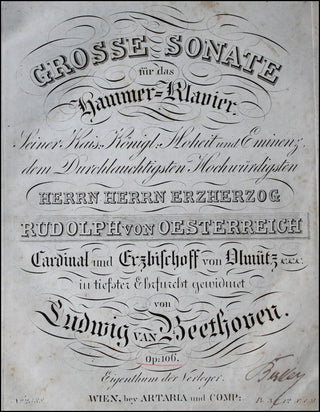 GROSSE SONATE
für das
Hammer-Klavier.
Seiner Kais. Königl. Hoheit und Eminenz,
dem Durchlauchtigsten Hochwürdigsten
HERRN HERRN ERZHERZOG
RUDOLPH VON OESTERREICH
Cardinal und Erzbischoff von Olmütz &.&.&.
in tiefster Ehrfurcht gewidmet
von
Ludwig VAN Beethoven.
Op: 106.
Eigenthum der Verleger.
WIEN, bey ARTARIA und COMP: